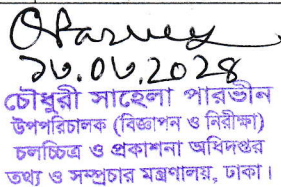 OParvey
১৩.০৬.২০২৪
চৌধুরী সাহেলা পারভীন
উপপরিচালক (বিজ্ঞাপন ও নিরীক্ষা)
চলচ্চিত্র ও প্রকাশনা অধিদপ্তর
তথ্য ও সম্প্রচার মন্ত্রণালয়, ঢাকা।